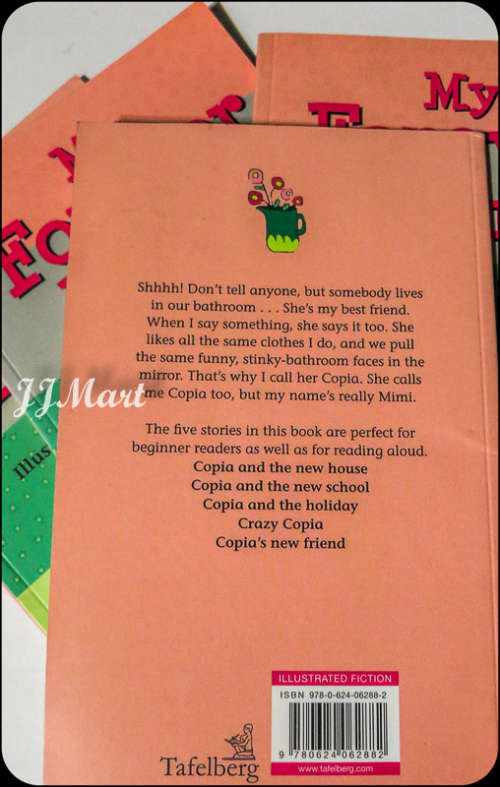 My
Shhhh! Don't tell anyone, but somebody lives
in our bathroom . . . She's my best friend.
When I say something, she says it too. She
likes all the same clothes I do, and we pull
the same funny, stinky-bathroom faces in the
mirror. That's why I call her Copia. She calls
me Copia too, but my name's really Mimi.
JJMart
The five stories in this book are perfect for
beginner readers as well as for reading aloud.
Copia and the new house
Copia and the new school
Copia and the holiday
Crazy Copia
Copia's new friend
Illus
ILLUSTRATED FICTION
ISBN 978-0-624-06288-2
9 780624 062882
www.tafelberg.com
Tafelberg